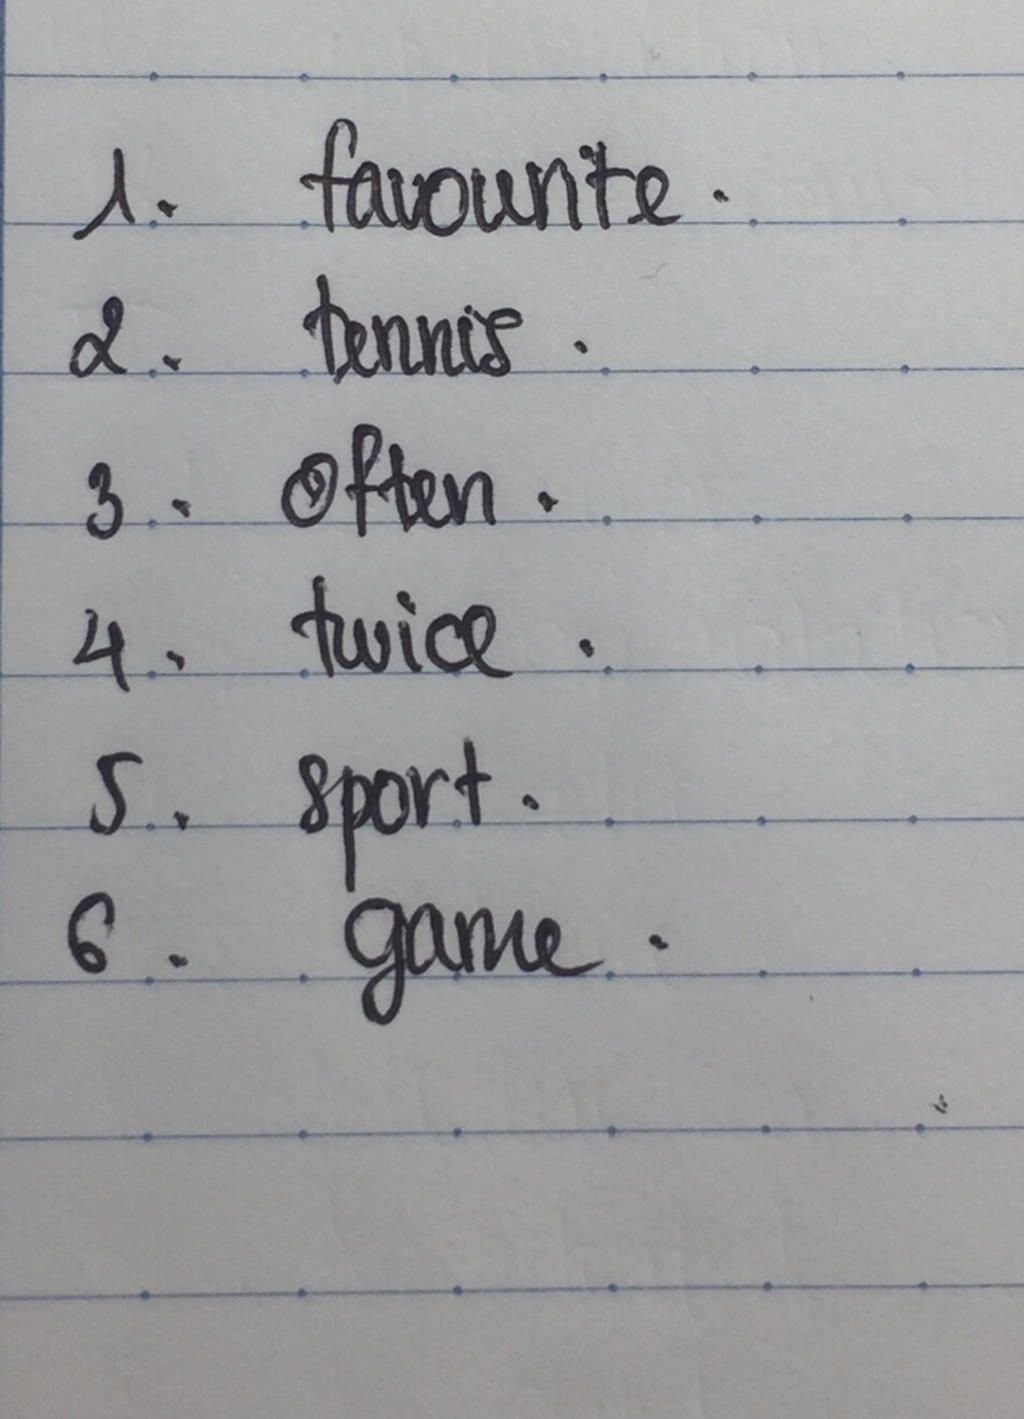 1. favourite.
2. tennis.
3. Often.
4. twice.
5. sport.
6. game.